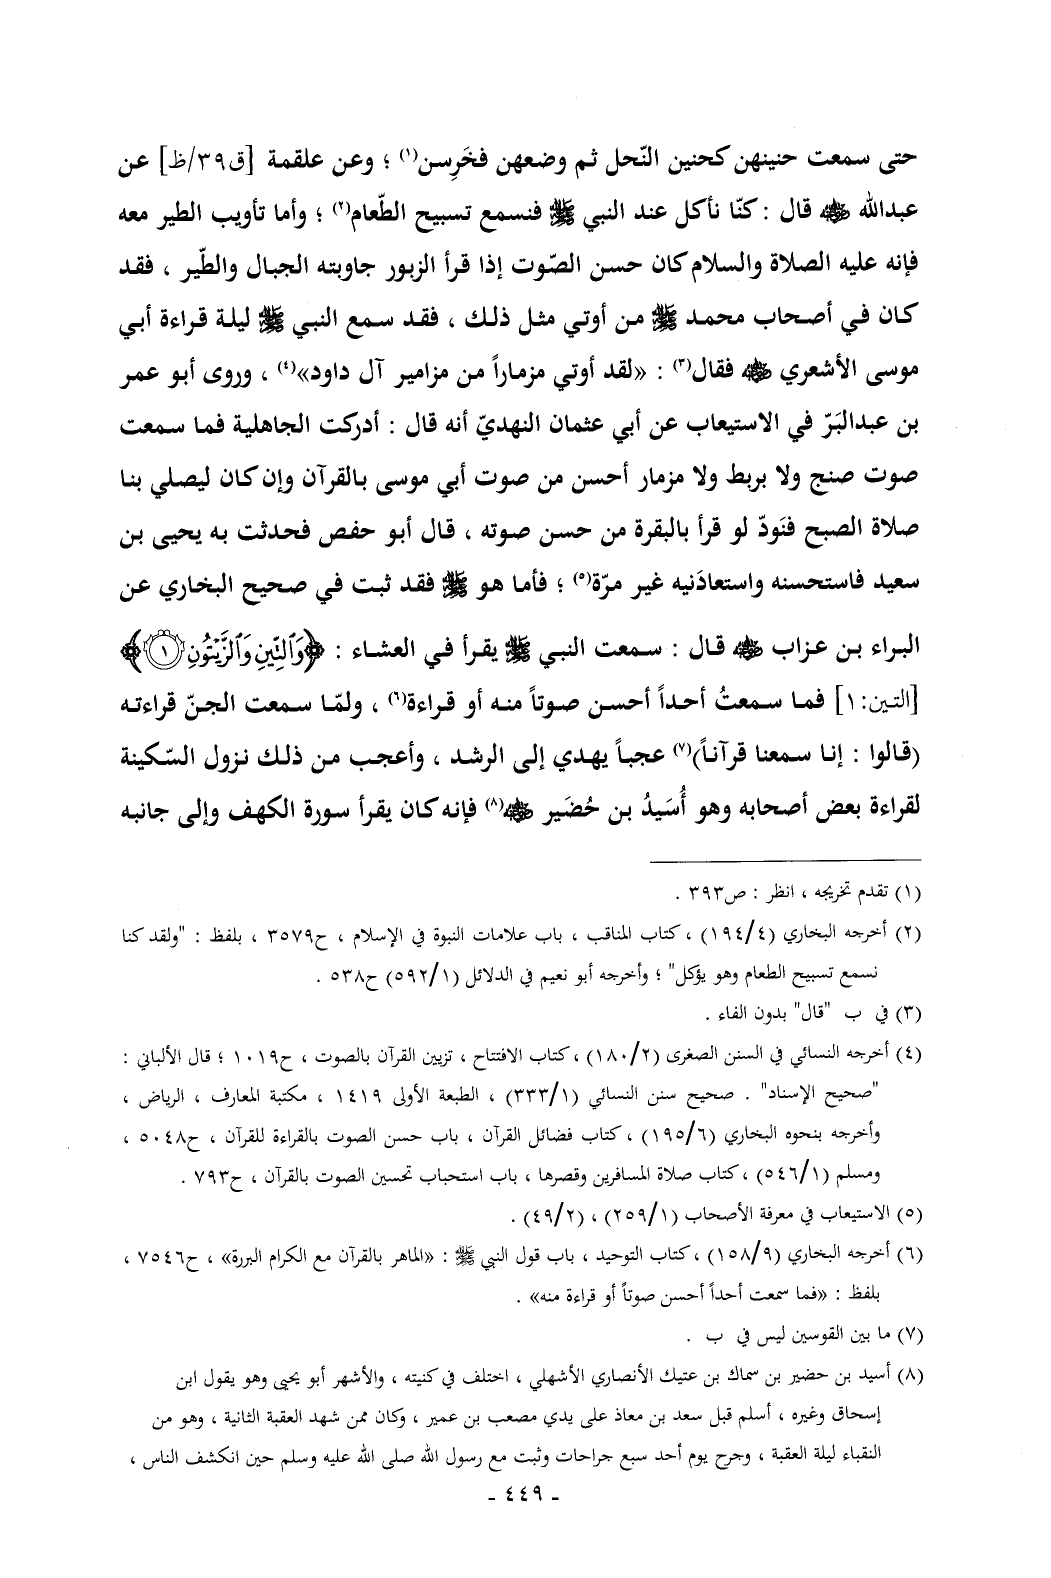 حتى سمعت حنينهن كحنين النّحل ثم وضعهن فخَرِسن(١) ؛ وعن علقمة [ق٣٩/ظ] عن
عبدالله ﷺ قال : كنّا نأكل عند النبي ﷺ فنسمع تسبيح الطّعام(٢) ؛ وأما تأويب الطير معه
فإنه عليه الصلاة والسلام كان حسن الصّوت إذا قرأ الزبور جاوبته الجبال والطّير ، فقد
كان في أصحاب محمد ﷺ من أوتي مثل ذلك ، فقد سمع النبي ﷺ ليلة قراءة أبي
موسى الأشعري رضي الله عنه فقال(٣) : «لقد أوتي مزماراً من مزامير آل داود»(٤) ، وروى أبو عمر
بن عبدالبَرّ في الاستيعاب عن أبي عثمان النهديّ أنه قال : أدركت الجاهلية فما سمعت
صوت صنج ولا بربط ولا مزمار أحسن من صوت أبي موسى بالقرآن وإن كان ليصلي بنا
صلاة الصبح فنَودّ لو قرأ بالبقرة من حسن صوته ، قال أبو حفص فحدثت به يحيى بن
سعيد فاستحسنه واستعادَنيه غير مرّة(٥) ؛ فأما هو ﷺ فقد ثبت في صحيح البخاري عن
البراء بن عزاب رضي الله عنه قال : سمعت النبي ﷺ يقرأ في العشاء : ﴿وَٱلتِّينِ وَٱلزَّيْتُونِ ١﴾
[التين:١] فما سمعتُ أحداً أحسن صوتاً منه أو قراءة(٦) ، ولمّا سمعت الجنّ قراءته
(قالوا : إنا سمعنا قرآناً)(٧) عجباً يهدي إلى الرشد ، وأعجب من ذلك نزول السّكينة
لقراءة بعض أصحابه وهو أُسَيدُ بن حُضَير رضي الله عنه(٨) فإنه كان يقرأ سورة الكهف وإلى جانبه
(١) تقدم تخريجه ، انظر : ص٣٩٣ .
(٢) أخرجه البخاري (١٩٤/٤) ، كتاب المناقب ، باب علامات النبوة في الإسلام ، ح٣٥٧٩ ، بلفظ : "ولقد كنا
نسمع تسبيح الطعام وهو يؤكل" ؛ وأخرجه أبو نعيم في الدلائل (٥٩٢/١) ح٥٣٨ .
(٣) في ب "قال" بدون الفاء .
(٤) أخرجه النسائي في السنن الصغرى (١٨٠/٢) ، كتاب الافتتاح ، تزيين القرآن بالصوت ، ح١٠١٩ ؛ قال الألباني :
"صحيح الإسناد" . صحيح سنن النسائي (٣٣٣/١) ، الطبعة الأولى ١٤١٩ ، مكتبة المعارف ، الرياض ،
وأخرجه بنحوه البخاري (١٩٥/٦) ، كتاب فضائل القرآن ، باب حسن الصوت بالقراءة للقرآن ، ح٥٠٤٨ ،
ومسلم (٥٤٦/١) ، كتاب صلاة المسافرين وقصرها ، باب استحباب تحسين الصوت بالقرآن ، ح٧٩٣ .
(٥) الاستيعاب في معرفة الأصحاب (٢٥٩/١) ، (٤٩/٢) .
(٦) أخرجه البخاري (١٥٨/٩) ، كتاب التوحيد ، باب قول النبي ﷺ : «الماهر بالقرآن مع الكرام البررة» ، ح٧٥٤٦ ،
بلفظ : «فما سمعت أحداً أحسن صوتاً أو قراءة منه» .
(٧) ما بين القوسين ليس في ب .
(٨) أسيد بن حضير بن سماك بن عتيك الأنصاري الأشهلي ، اختلف في كنيته ، والأشهر أبو يحيى وهو يقول ابن
إسحاق وغيره ، أسلم قبل سعد بن معاذ على يدي مصعب بن عمير ، وكان ممن شهد العقبة الثانية ، وهو من
النقباء ليلة العقبة ، وجرح يوم أحد سبع جراحات وثبت مع رسول الله صلى الله عليه وسلم حين انكشف الناس ،
- ٤٤٩ -